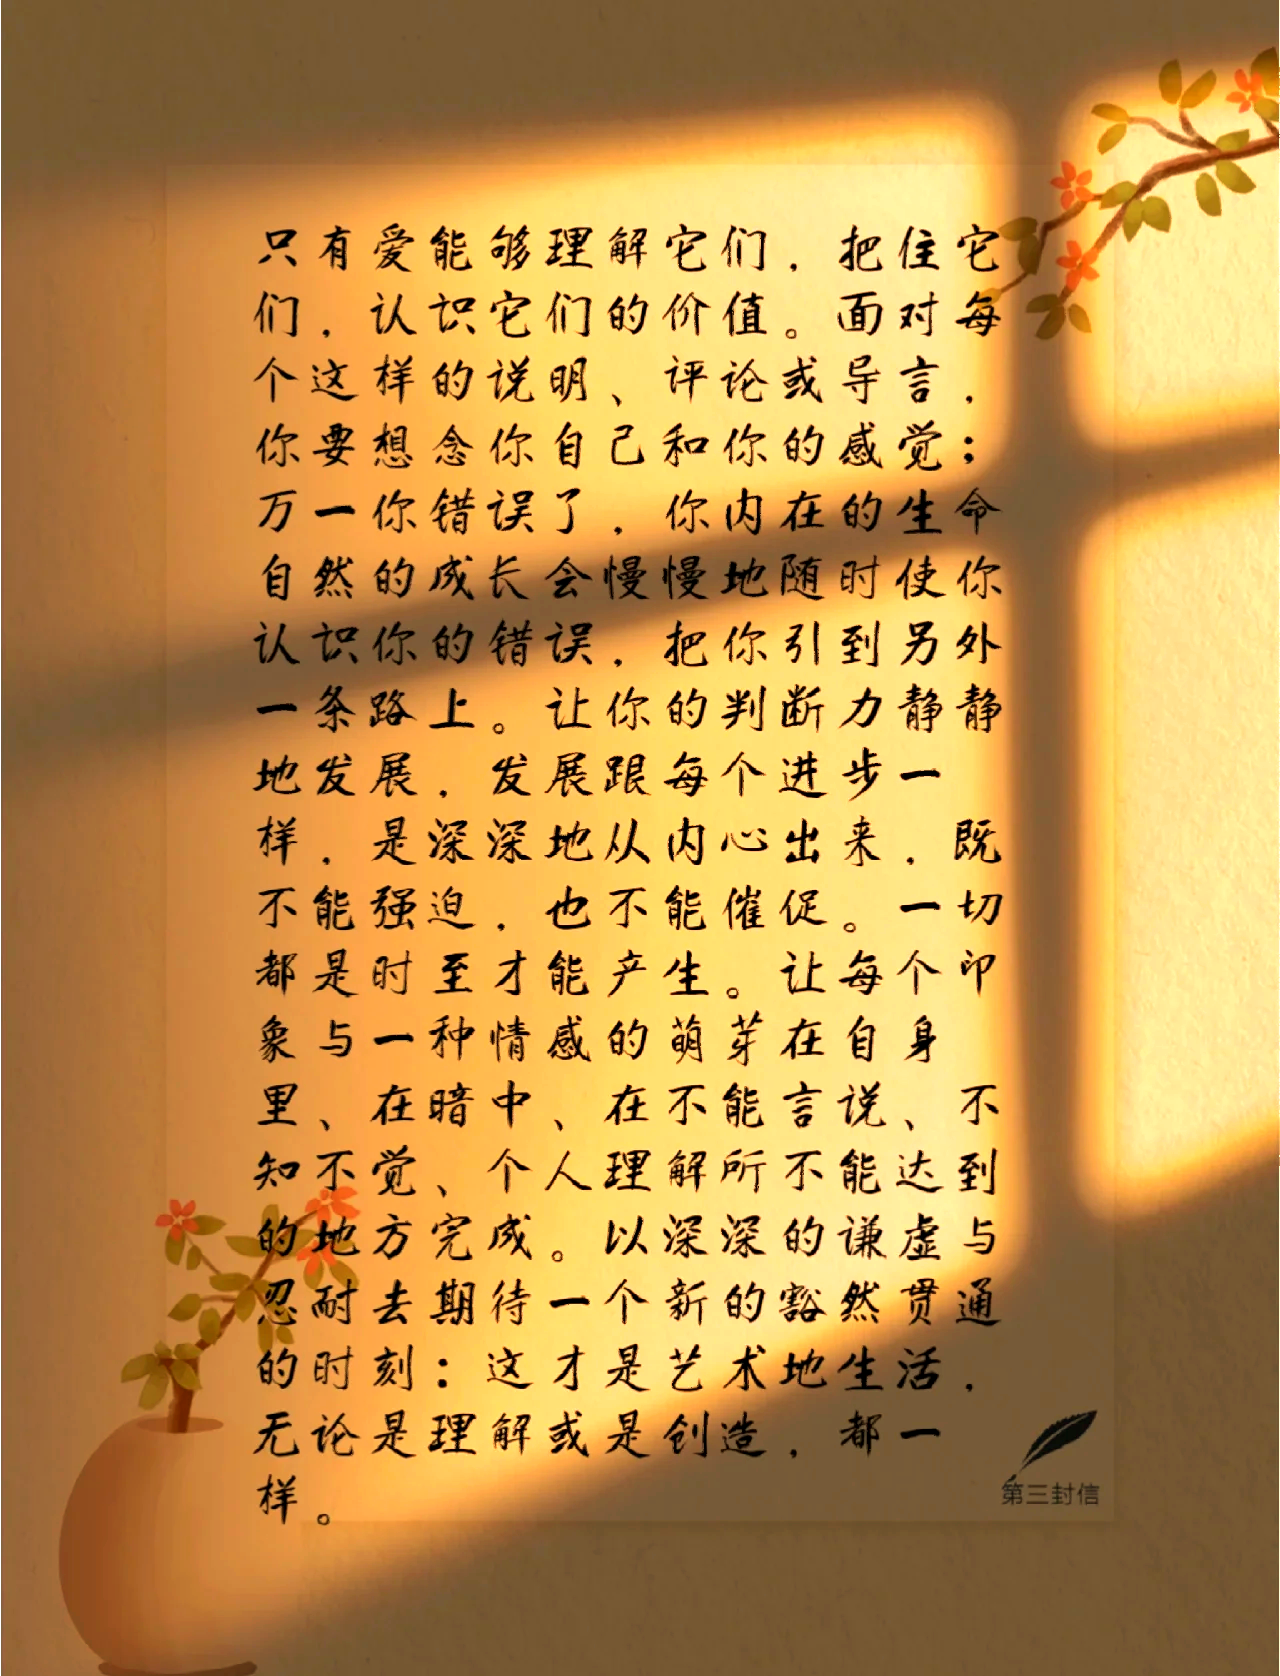 只有爱能够理解它们，把住它
们，认识它们的价值。面对每
个这样的说明、评论或导言，
你要想念你自己和你的感觉；
万一你错误了，你内在的生命
自然的成长会慢慢地随时使你
认识你的错误，把你引到另外
一条路上。让你的判断力静静
地发展，发展跟每个进步一
样，是深深地从内心出来，既
不能强迫，也不能催促。一切
都是时至才能产生。让每个印
象与一种情感的萌芽在自身
里、在暗中、在不能言说、不
知不觉、个人理解所不能达到
的地方完成。以深深的谦虚与
忍耐去期待一个新的豁然贯通
的时刻：这才是艺术地生活，
无论是理解或是创造，都一
样。
第三封信